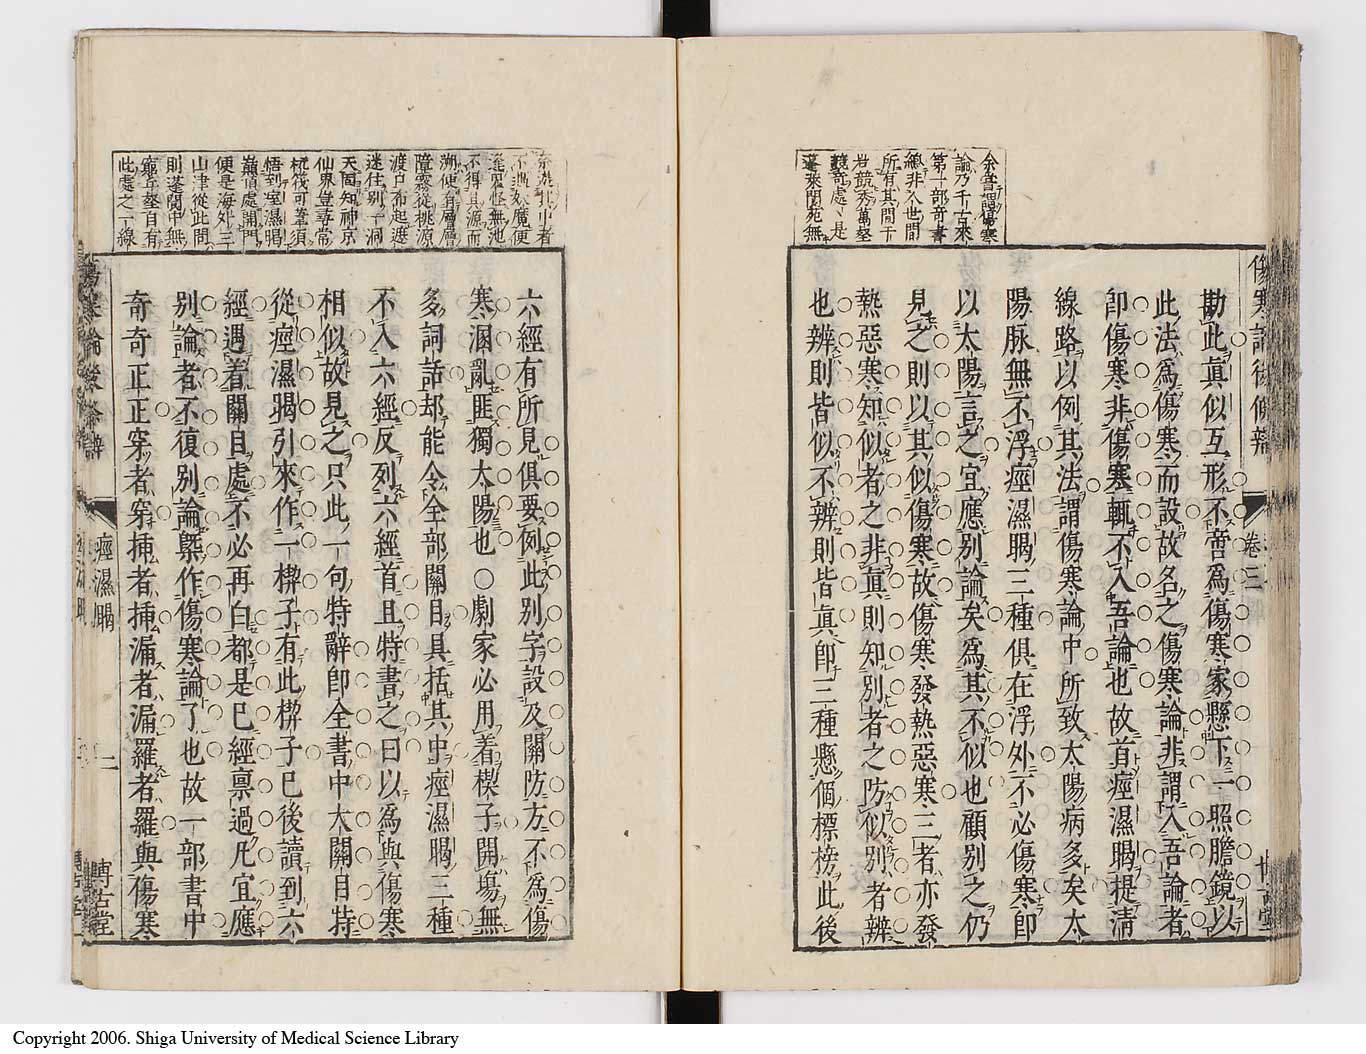 余嘗謂傷寒
論乃千古來
第一部奇書
總非人世間
所有其間千
岩競秀萬壑
競奇處々是
蓬萊閬苑無
傷寒論後條辨
卷三
勘此眞似互形不啻爲傷寒家懸下一照膽鏡以
此法爲傷寒而設故名之傷寒論非謂入吾論者
卽傷寒非傷寒輒不入吾論也故首痙濕暍提淸
線路以例其法謂傷寒論中所致太陽病多矣太
陽脉無不浮痙濕暍三種俱在浮外不必傷寒卽
以太陽言之宜應別論矣爲其不似也顧別之仍
見之則以其似傷寒故傷寒發熱惡寒三者亦發
熱惡寒知似者之非眞則知別者之防似別者辨
也辨則皆似不辨則皆眞卽三種懸個標榜此後
不遇妖魔便
逢鬼怪無池
不得其源而
溯便有層層
障霧從桃源
渡口布起遮
迷住別一洞
天固知神京
仙界豈尋常
桴筏可葦須
悟到室濕暍
巔憤處開門
便是海外三
山津從此問
則蓬閬中無
竅丘壑自有
此處之一線
六經有所見俱要例此別字設及關防方不爲傷
寒溷亂匪獨太陽也○劇家必用着楔子開塲無
多詞話却能令全部關目具括其中痙濕暍三種
不入六經反列六經首且特書之曰以爲與傷寒
相似故見之只此一句特辭卽全書中大關目特
從痙濕暍引來作一楔子有此楔子已後讀到六
經遇着關目處不必再白都是已經禀過凡宜應
別論者不復別論槩作傷寒論了也故一部書中
奇奇正正穿者穿揷者揷漏者漏羅者羅與傷寒
痙濕暍
二
博古堂
Copyright 2006. Shiga University of Medical Science Library